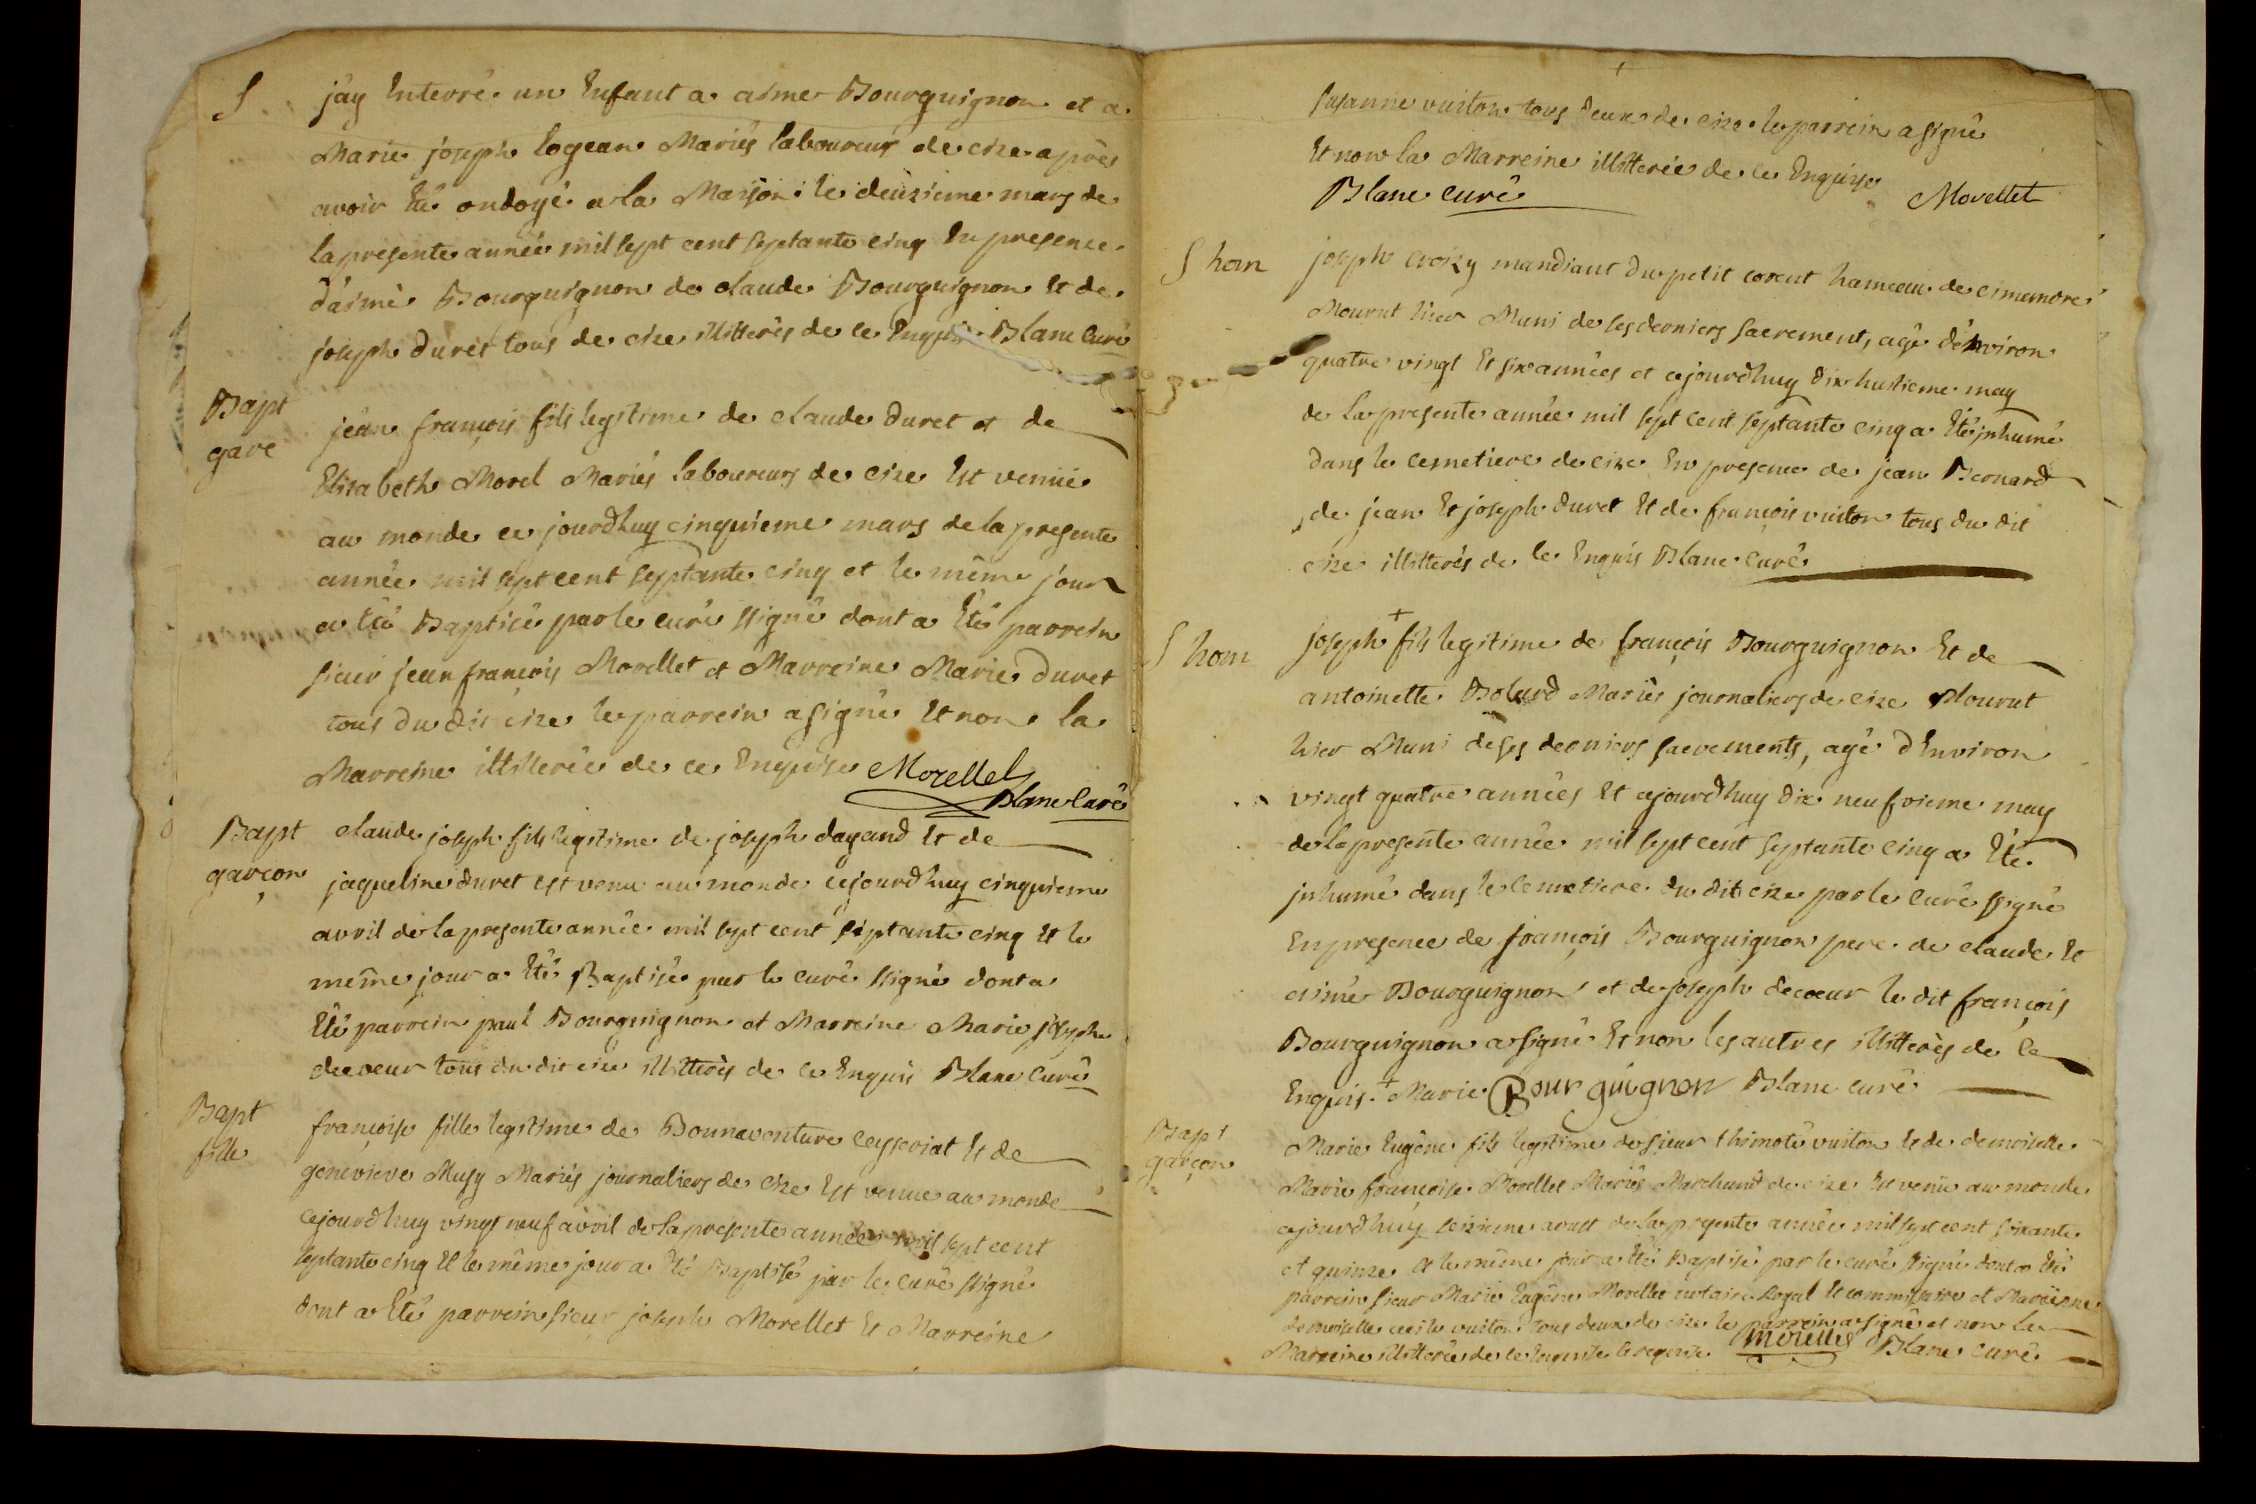 S
jay Enterré un Enfant a aimé Bourguignon et a
Marie joseph logean Mariés laboureur de cize après
avoir Eté ondoyé a la Maison le deuzieme mars de
la presente année mil sept cent septante cinq En presence
d'aimé Bourguignon de claude Bourguignon Et de
joseph duret tous de cize illitterés de ce Enquis Blanc Curé
Bapt
garc
jean françois fils legitime de claude duret et de
Elizabeth Morel Mariés laboureurs de cize Est venüe
au monde ce jourdhuy cinquieme mars de la presente
année mil sept cent septante cinq et le même jour
a Eté Baptisé par le curé ssigné dont a Eté parrein
sieur jean françois Morellet et Marreine Marie duret
tous du dit cize le parrein a signé Et non la
Marreine illiterée de ce Enquise Morellet
Blanc Curé
Bapt
garçon
claude joseph fils legitime de joseph dagand Et de
jaqueline duret est venu au monde cejourdhuy cinquieme
avril de la presente année mil sept cent septante cinq Et le
même jour a Eté Baptisé par le curé ssigné dont a
Eté parrein paul Bourguignon et Marreine Marie joseph
decoeur tous du dit cize illitterés de ce Enquis Blanc Curé
Bapt
fille
françoise fille legitime de Bonnaventure Ceyseriat Et de
genevieve Musy Mariés journaliers de cize Est venue au monde
cejourdhuy vingt neuf avril de la presente année mil sept cent
septante cinq Et le même jour a Eté Baptisé par le curé ssigné
dont a Eté parrein sieur joseph Morellet Et Marreine
susanne vuiton tous deux de cize le parrein a signé
Et non la Marreine illitterée de ce Enquise
Blanc curé Morellet
S hom
joseph croizy mandiant du petit corent hameau de cimandre
Mourut hier Muni de ses derniers sacrement, agé d'Environ
quatre vingt Et six années et cejourdhuy dix huitieme may
de la presente année mil sept cent septante cinq a Eté jnhumé
dans le cemetiere de cize En presence de jean Bernard
de jean Et joseph duret Et de françois vuiton tous du dit
cize illitterés de ce Enquis Blanc curé
S hom
joseph + fils legitime de françois Bourguignon Et de
antoinette Mariés journaliers de cize Mourut
hier Muni de ses derniers sacrements, agé d'Environ
vingt quatre années Et cejourdhuy dix neufvieme may
de la presente année mil sept cent septante cinq a Eté
jnhumé dans le cemetiere du dit cize par le curé ssigné
En presence de françois Bourguignon pere de claude Et
aimé Bourguignon et de joseph decoeur le dit françois
Bourguignon a signé Et non les autres illitterés de ce
Enquis. + Marie Bourguignon Blanc curé
Bapt
garçon
Marie Eugène fils legitime de sieur thimoté vuiton Et de demoiselle
Marie françoise Morellet Mariés Marchand de cize Est venu au monde
cejourdhuy seizieme aoust de la presente année mil sept cent soixante
et quinze et le même jour a Eté Baptisé par le curé ssigné dont a Eté
parrein sieur Marie Eugène Morellet notaire Royal Et commissaire et Marreine
demoiselle cecile vuiton tous deux de cize le parrein a signé et non la
Marreine illitterée de ce Enquise Morellet Blanc curé